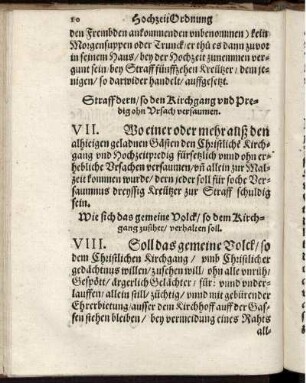 10 HochzeitOrdnung
den Frembden ankommenden vnbenommen) kein
Morgensuppen oder Trunck/ er thü es dann zuvor
in seinem Hauß/ bey der Hochzeit zunemmen ver-
gunt sein/ bey Straff fünffzehen Kreützer: dem je-
nigen/ so darwider handelt/ auffgesetzt.
Straff dern/ so den Kirchgang vnd Pre-
dig ohn Vrsach versaumen.
VII. Wo einer oder mehr auß den
alhieigen geladnen Gästen den Christliche Kirch-
gang vnd Hochzeitpredig fürsetzlich vnnd ohn er-
hebliche Vrsachen versaumen/ vñ allein zur Mal-
zeit kommen wurde/ dern jeder soll für soche Ver-
saumnus dreyssig Kreützer zur Straff schuldig
sein.
Wie sich das gemeine Volck/ so dem Kirch-
gang zusihet/ verhalten soll.
VIII. Soll das gemeine Volck/ so
dem Christlichen Kirchgang / vmb Christlicher
gedächtnus willen/ zusehen will/ ohn alle vnrüh/
Gespött/ ärgerlich Gelächter/ für: vnnd vnder-
lauffen/ allein still/ züchtig/ vnnd mit gebürender
Ehrerbietung/ ausser dem Kirchhoff auff der Gas-
sen stehen bleiben/ bey vermeidung eines Rahts
all-